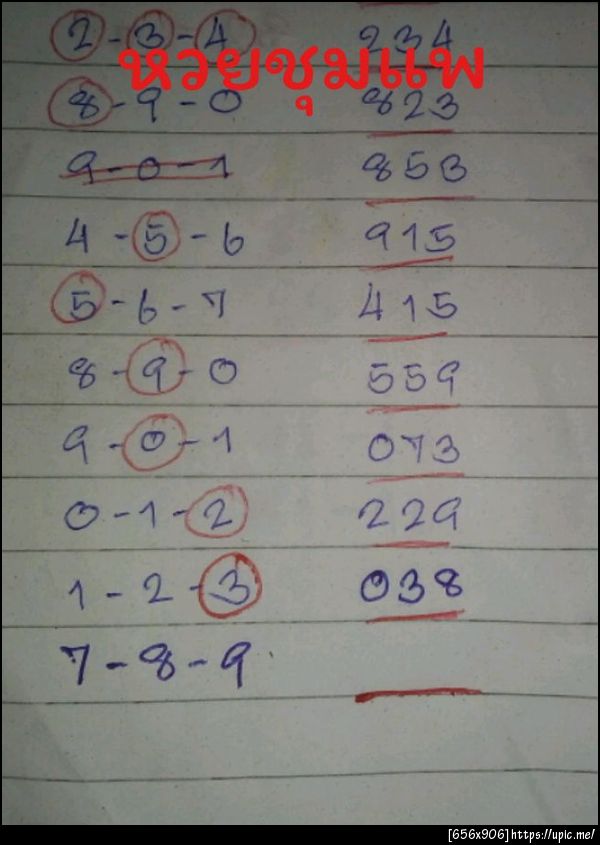 2-3-4 234
หวยชุมแพ
8-9-0 823
9-0-1 853
4-5-6 915
5-6-7 415
8-9-0 559
9-0-1 073
0-1-2 229
1-2-3 038
7-8-9
[656x906]https://upic.me/